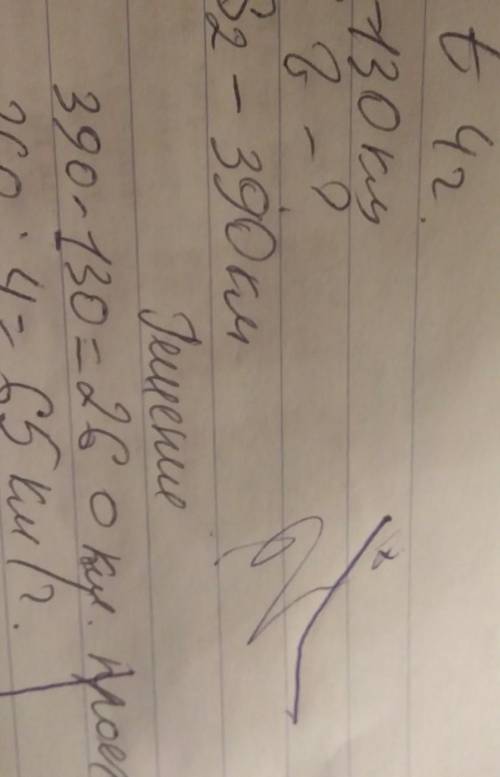 t 4г.
-130 км
? - ?
S2 - 390 км
Решение
390-130=260 км. прое
260 : 4 = 65 км/г.